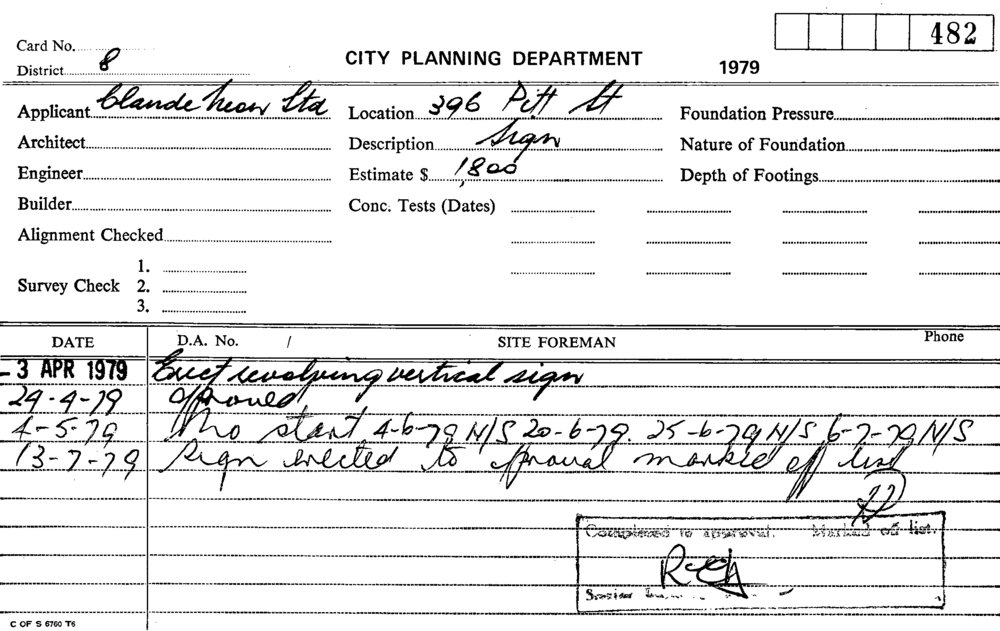 482
Card No.
District 8
CITY PLANNING DEPARTMENT
1979
Applicant Claude Neon Ltd
Location 396 Pitt St
Foundation Pressure
Architect
Description Sign
Nature of Foundation
Engineer
Estimate $ 1,800
Depth of Footings
Builder
Conc. Tests (Dates)
Alignment Checked
1.
Survey Check 2.
3.
DATE D.A. No. / SITE FOREMAN Phone
- 3 APR 1979 Erect revolving vertical sign
29-4-79
4-5-79 No start 4-6-79 N/S 20-6-79. 25-6-79 N/S 6-7-79 N/S
13-7-79 Sign erected to approval marked off list
Completed to approval. Marked off list.
C OF S 6760 T6